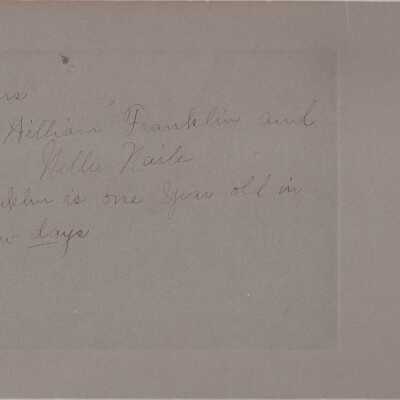 rs
William Franklin and
Nellie Naile
klin is one year old in
w days